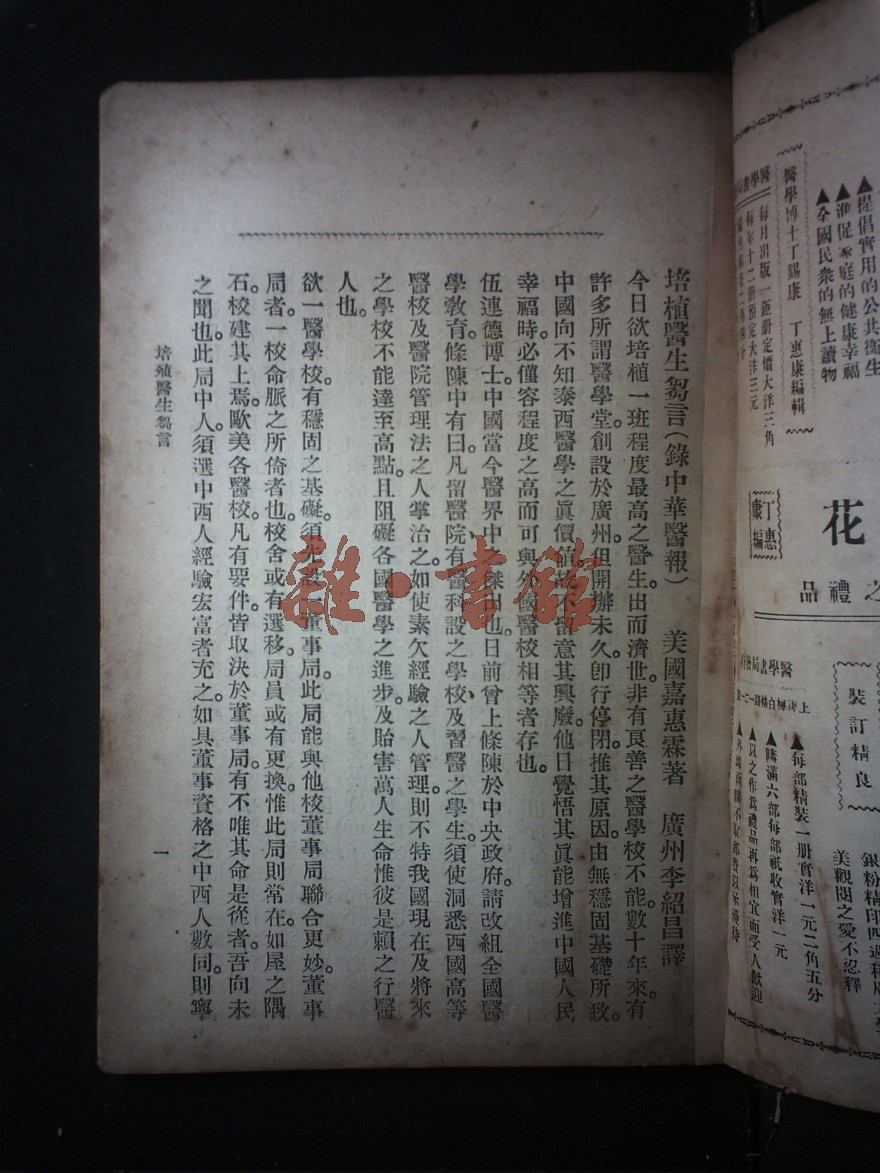 培植醫生芻言(錄中華醫報) 美國嘉惠霖著 廣州李紹昌譯
今日欲培植一班程度最高之醫生。出而濟世。非有良善之醫學校不能。數十年來。有
許多所謂醫學堂。創設於廣州。但開辦未久。卽行停閉。推其原因。由無穩固基礎所致。
中國向不知泰西醫學之眞價値。故不留意其興廢。他日覺悟其眞能增進中國人民
幸福時。必僅容程度之高而可與外國醫校相等者存也。
伍連德博士。中國當今醫界中之傑出也。日前曾上條陳於中央政府。請改組全國醫
學教育。條陳中有曰。凡留醫院。有醫科設之學校。及習醫之學生。須使洞悉西國高等
醫校及醫院管理法之人掌治之。如使素欠經驗之人管理。則不特我國現在及將來
之學校不能達至高點。且阻礙各國醫學之進步。及貽害萬人生命惟彼是賴之行醫
人也。
欲一醫學校。有穩固之基礎。須先設一董事局。此局能與他校董事局聯合更妙。董事
局者。一校命脈之所倚者也。校舍或有遷移。局員或有更換。惟此局則常在。如屋之隅
石。校建其上焉。歐美各醫校。凡有要件。皆取決於董事局。有不唯其命是從者。吾向未
之聞也。此局中人。須選中西人經驗宏富者充之。如具董事資格之中西人數同。則寧
培殖醫生芻言
一
雜·書館
▲提倡實用的公共衛生
▲準促家庭的健康幸福
▲全國民衆的無上讀物
醫學博士丁錫康 丁惠康編輯
每月出版一鉅册定價大洋三角
每年十二册預定大洋三元
丁惠康編
花
之禮品
裝訂精良
▲每部精裝一册實洋一元二角五分
▲購滿六部每部祇收實洋一元
▲以之作爲禮品再爲相宜而受人歡迎
美觀閱之愛不忍釋